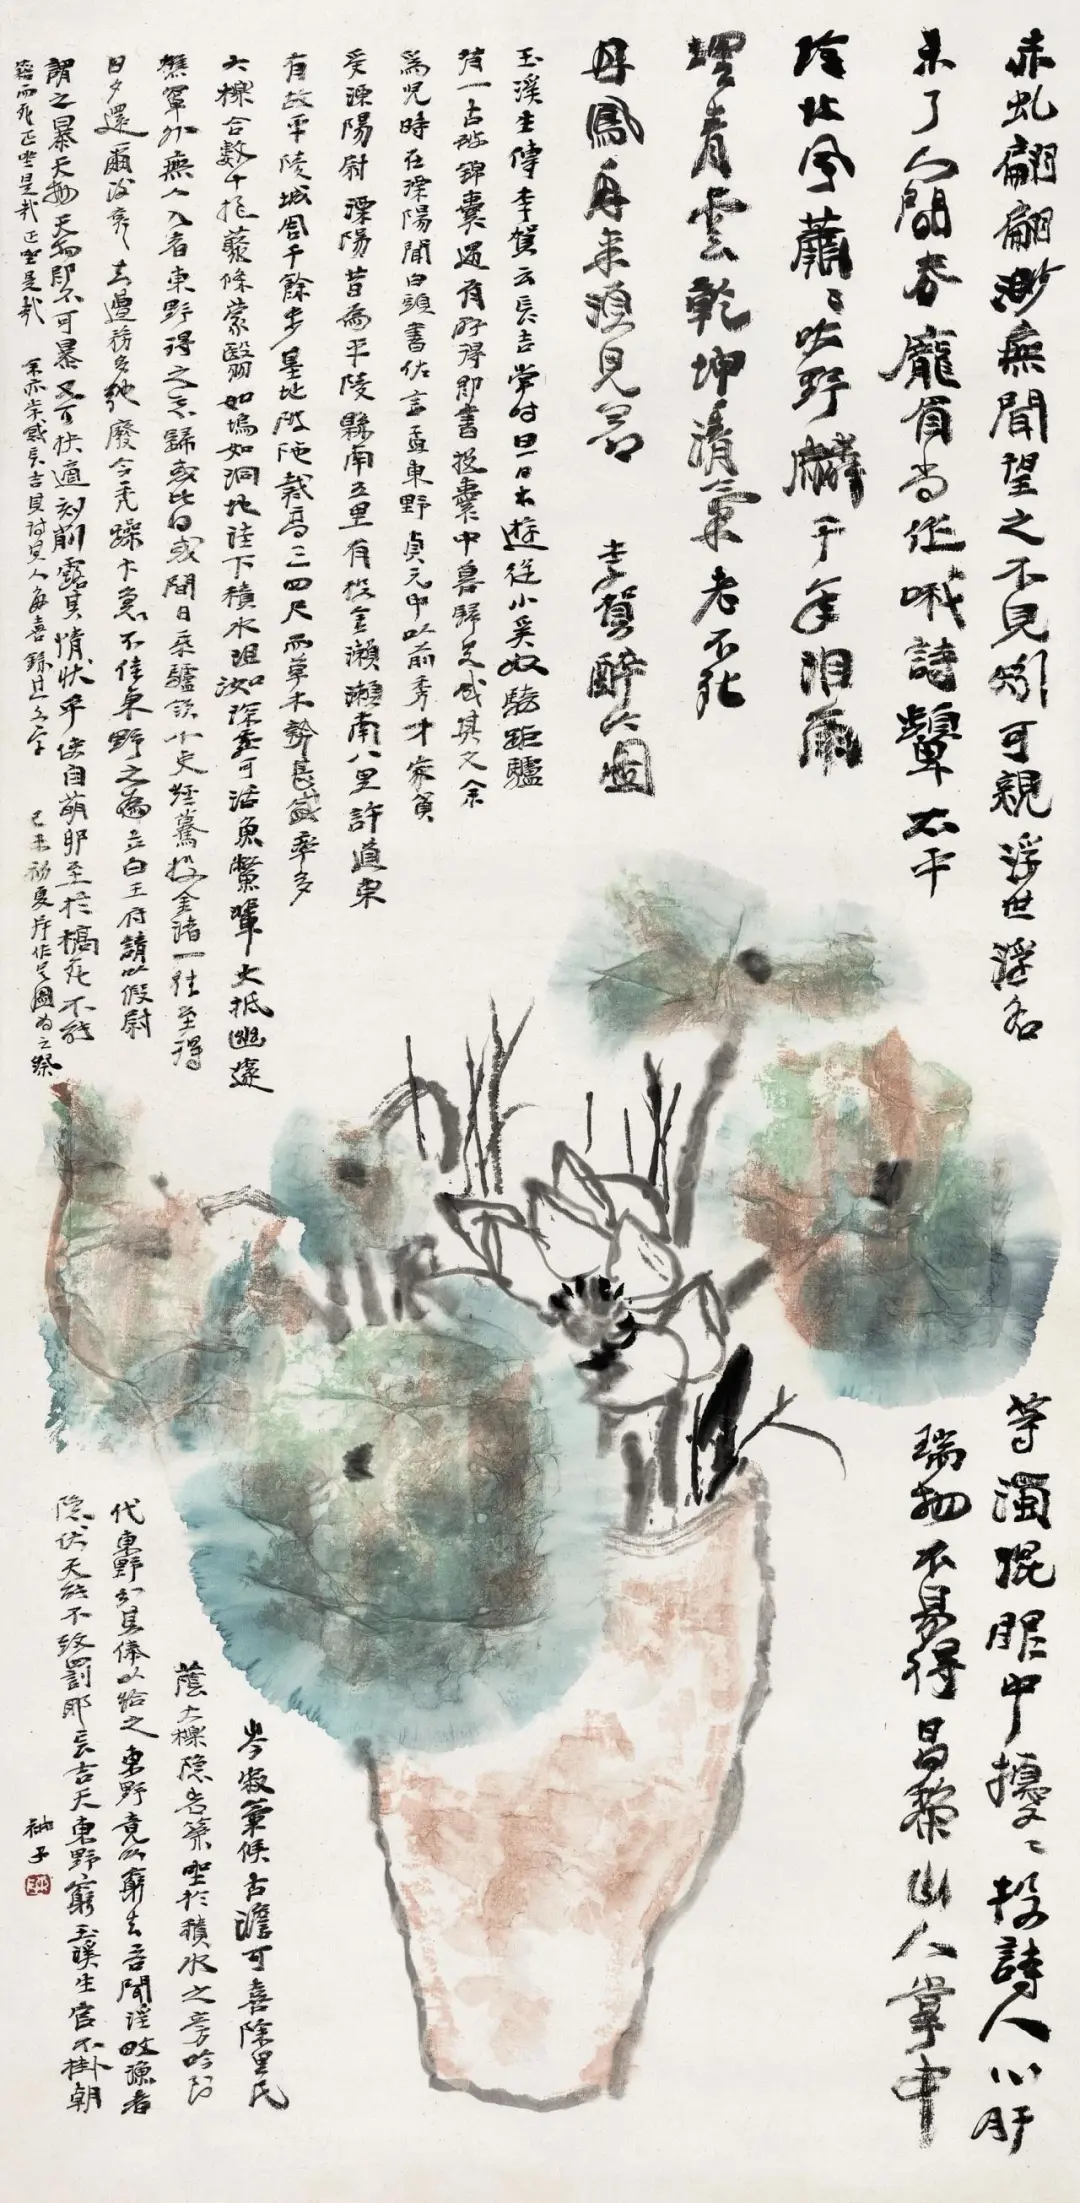 赤虬翩翩渺無聞望之不見矧可親浮世浮名
等濁混眼中擾〻投詩人心肝
未了人間春龐眉尚作哦詩顰太平
瑞物不易得昌黎仙人掌中
珍北風蕭〻吹野麟千年泪雨
埋青雲乾坤清氣老不死
丹鳳再來須見君 李賀醉吟圖
玉溪生傳李賀云長吉常時旦日出遊從小奚奴騎距驢
背一古破錦囊遇有所得即書投囊中暮歸足成其文余
為兒時在溧陽聞白頭書佐言孟東野貞元中以前秀才家貧
受溧陽尉溧陽昔為平陵縣南五里有投金瀨瀨南八里許道東
有故平陵城周千餘步基地陂陁裁高三四尺而草木勢甚盛率多
大櫟合數十抱藂篠蒙翳如塢如洞地窪下積水沮洳深處可活魚鱉輩大抵幽邃
岑寂氣候古澹可喜除里民
樵罩外無人入者東野得之忘歸或比日或間日乘驢領小吏經驀投金渚一往至得
蔭大櫟隱岩篠坐於積水之旁吟到
日夕還爾後袞〻去曹務多弛廢令季躁卞急不佳東野之為立白上府請以假尉
代東野分其俸以給之東野竟以窮去吾聞淫畋漁者
謂之暴天物天物既不可暴又可抉適刻削露其情狀乎使自萌卵至於槁死不能
隱伏天能不致罰耶長吉夭東野窮玉溪生官不掛朝
籍而死正坐是哉正坐是哉 余亦常感長吉其人每喜錄其文字 己未初夏作是圖為之祭
袖子